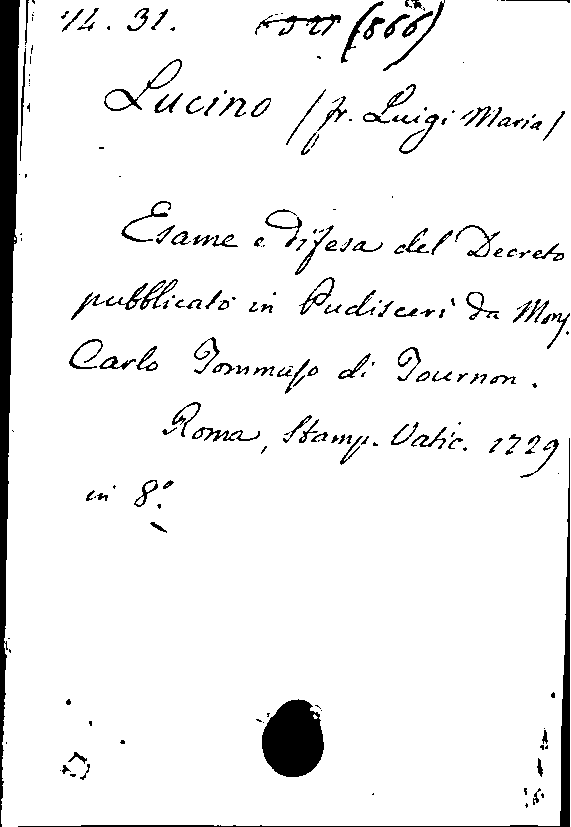 14. 31. (866)
Lucino / fr. Luigi Maria /
Esame e difesa del Decreto
pubblicato in Pudisceri da Mons.
Carlo Tommaso di Tournon.
Roma, Stamp. Vatic. 1729
in 8º.